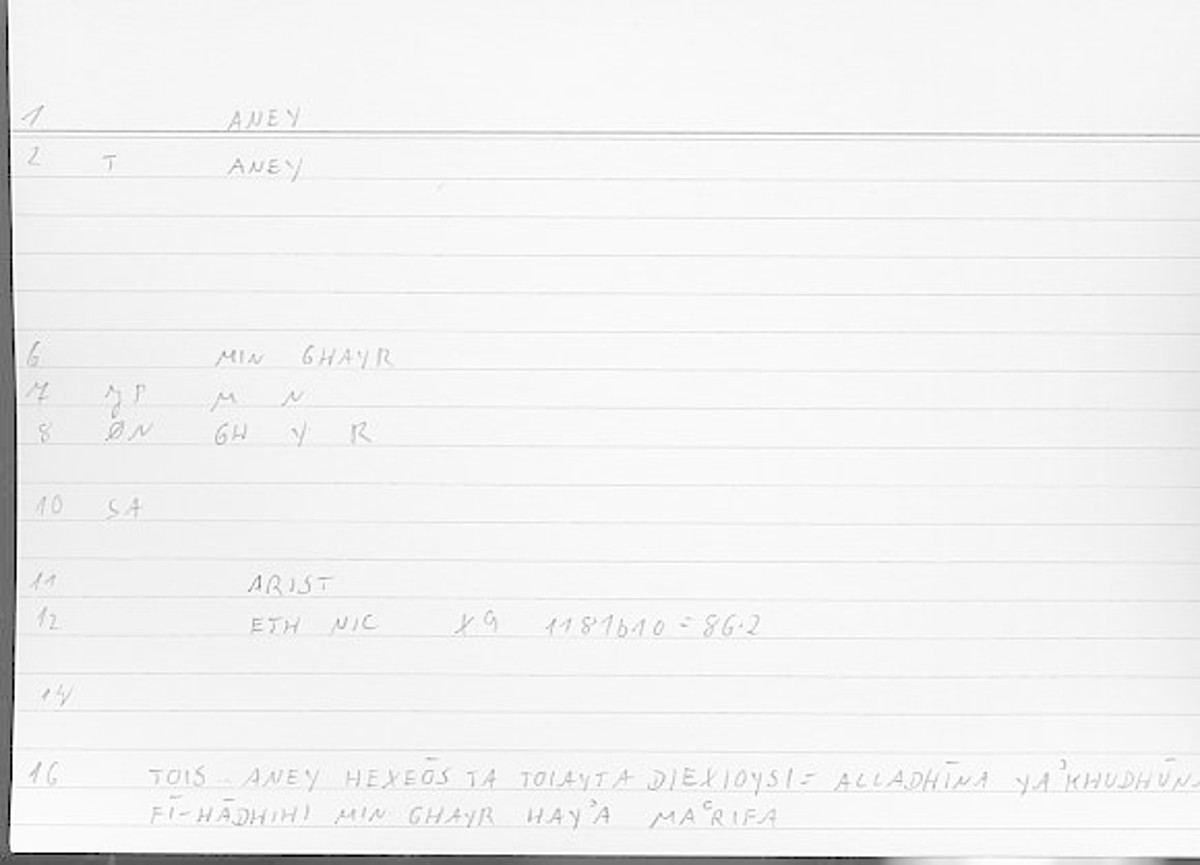 1 ANEY
2 T ANEY
6 MIN GHAYR
7 M N
8 ØN GH Y R
10 SA
11 ARIST
12 ETH NIC X9 1181b10 = 86.2
14
16 TOIS .. ANEY HEXEŌS TA TOIAYTA DIEXIOYSI = ALLADHĪNA YAʾKHUDHŪN
FĪ-HĀDHIHI MIN GHAYR HAYʾA MAʿRIFA